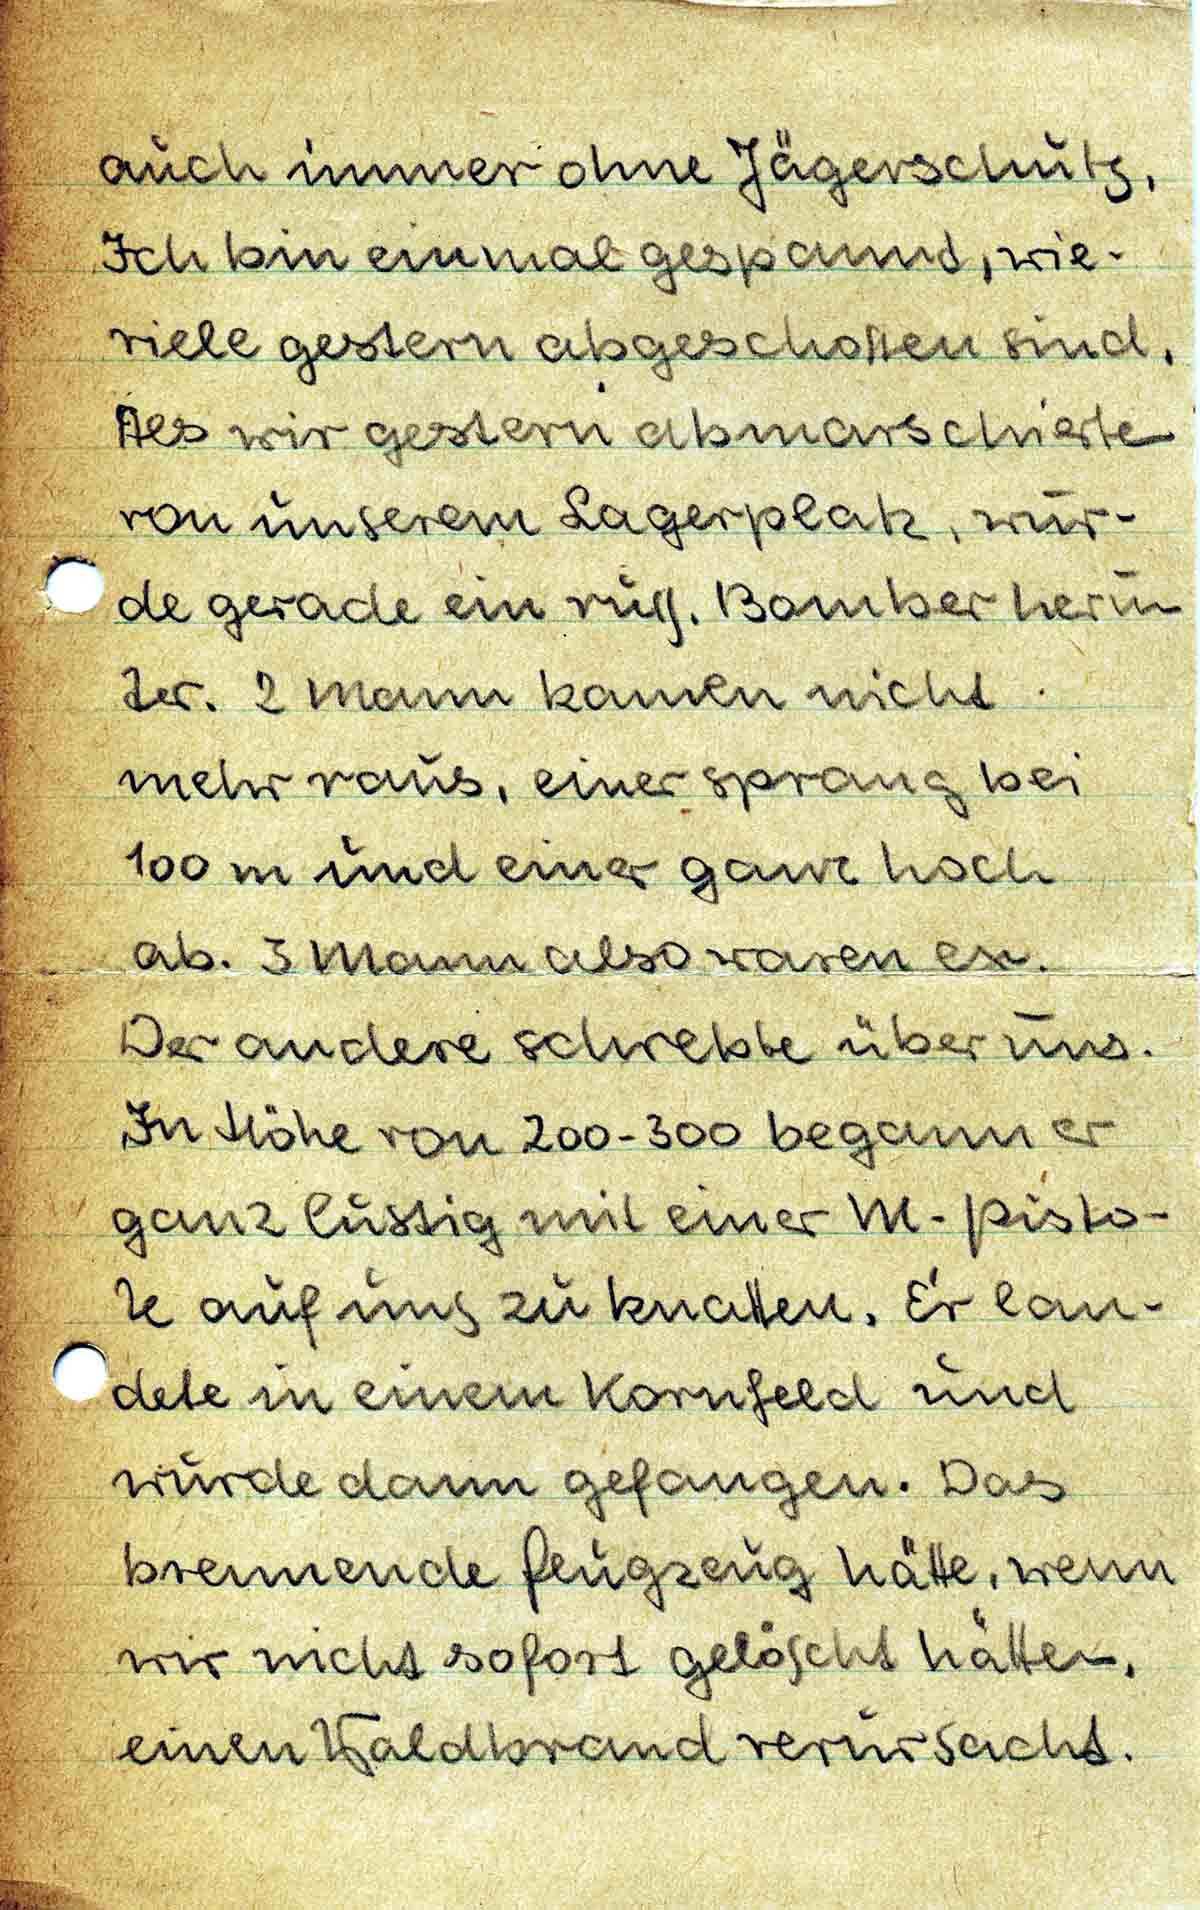 auch immer ohne Jägerschutz.
Ich bin einmal gespannt, wie-
viele gestern abgeschossen sind.
Als wir gestern abmarschierte
von unserem Lagerplatz, wur-
de gerade ein russ. Bomber herun
ter. 2 Mann kamen nicht
mehr raus, einer sprang bei
100 m und einer ganz hoch
ab. 3 Mann also waren ex.
Der andere schwebte über uns.
In Höhe von 200-300 begann er
ganz lustig mit einer M-Pisto-
le auf uns zu knallen. Er lan-
dete in einem Kornfeld und
wurde dann gefangen. Das
brennende Flugzeug hätte, wenn
wir nicht sofort gelöscht hätten,
einen Waldbrand verursacht.